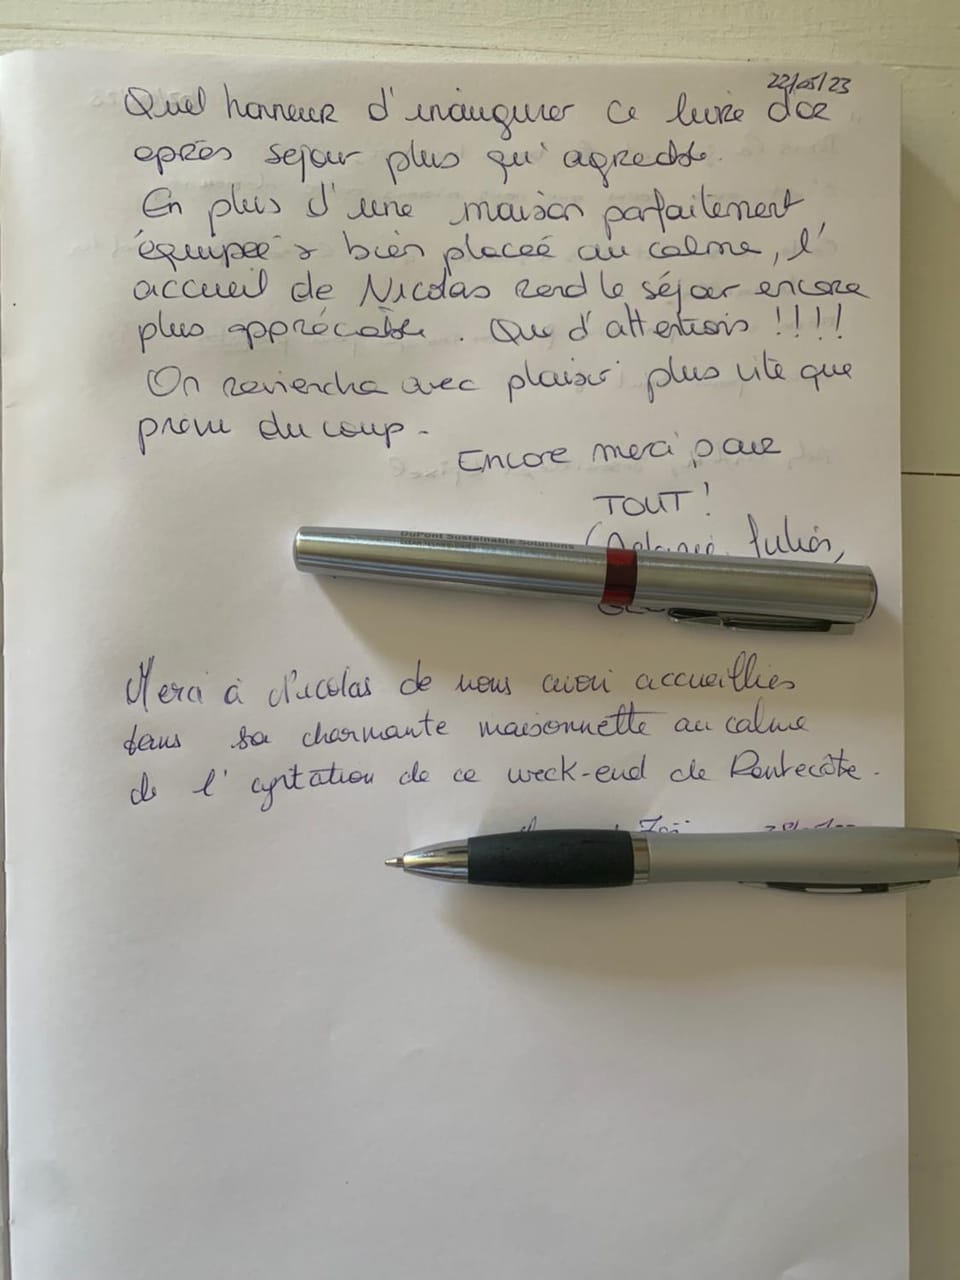 22/05/23
Quel honneur d'inaugurer ce livre d'or
après séjour plus qu'agréable.
En plus d'une maison parfaitement
équipée & bien placée au calme, l'
accueil de Nicolas rend le séjour encore
plus appréciable. Que d'attentions !!!!
On reviendra avec plaisir plus vite que
prévu du coup.
Encore merci pour
TOUT!
Julien,
DuPont Sustainable Solutions
Merci à Nicolas de nous avoir accueillies
dans sa charmante maisonnette au calme
de l'agitation de ce week-end de Pentecôte.